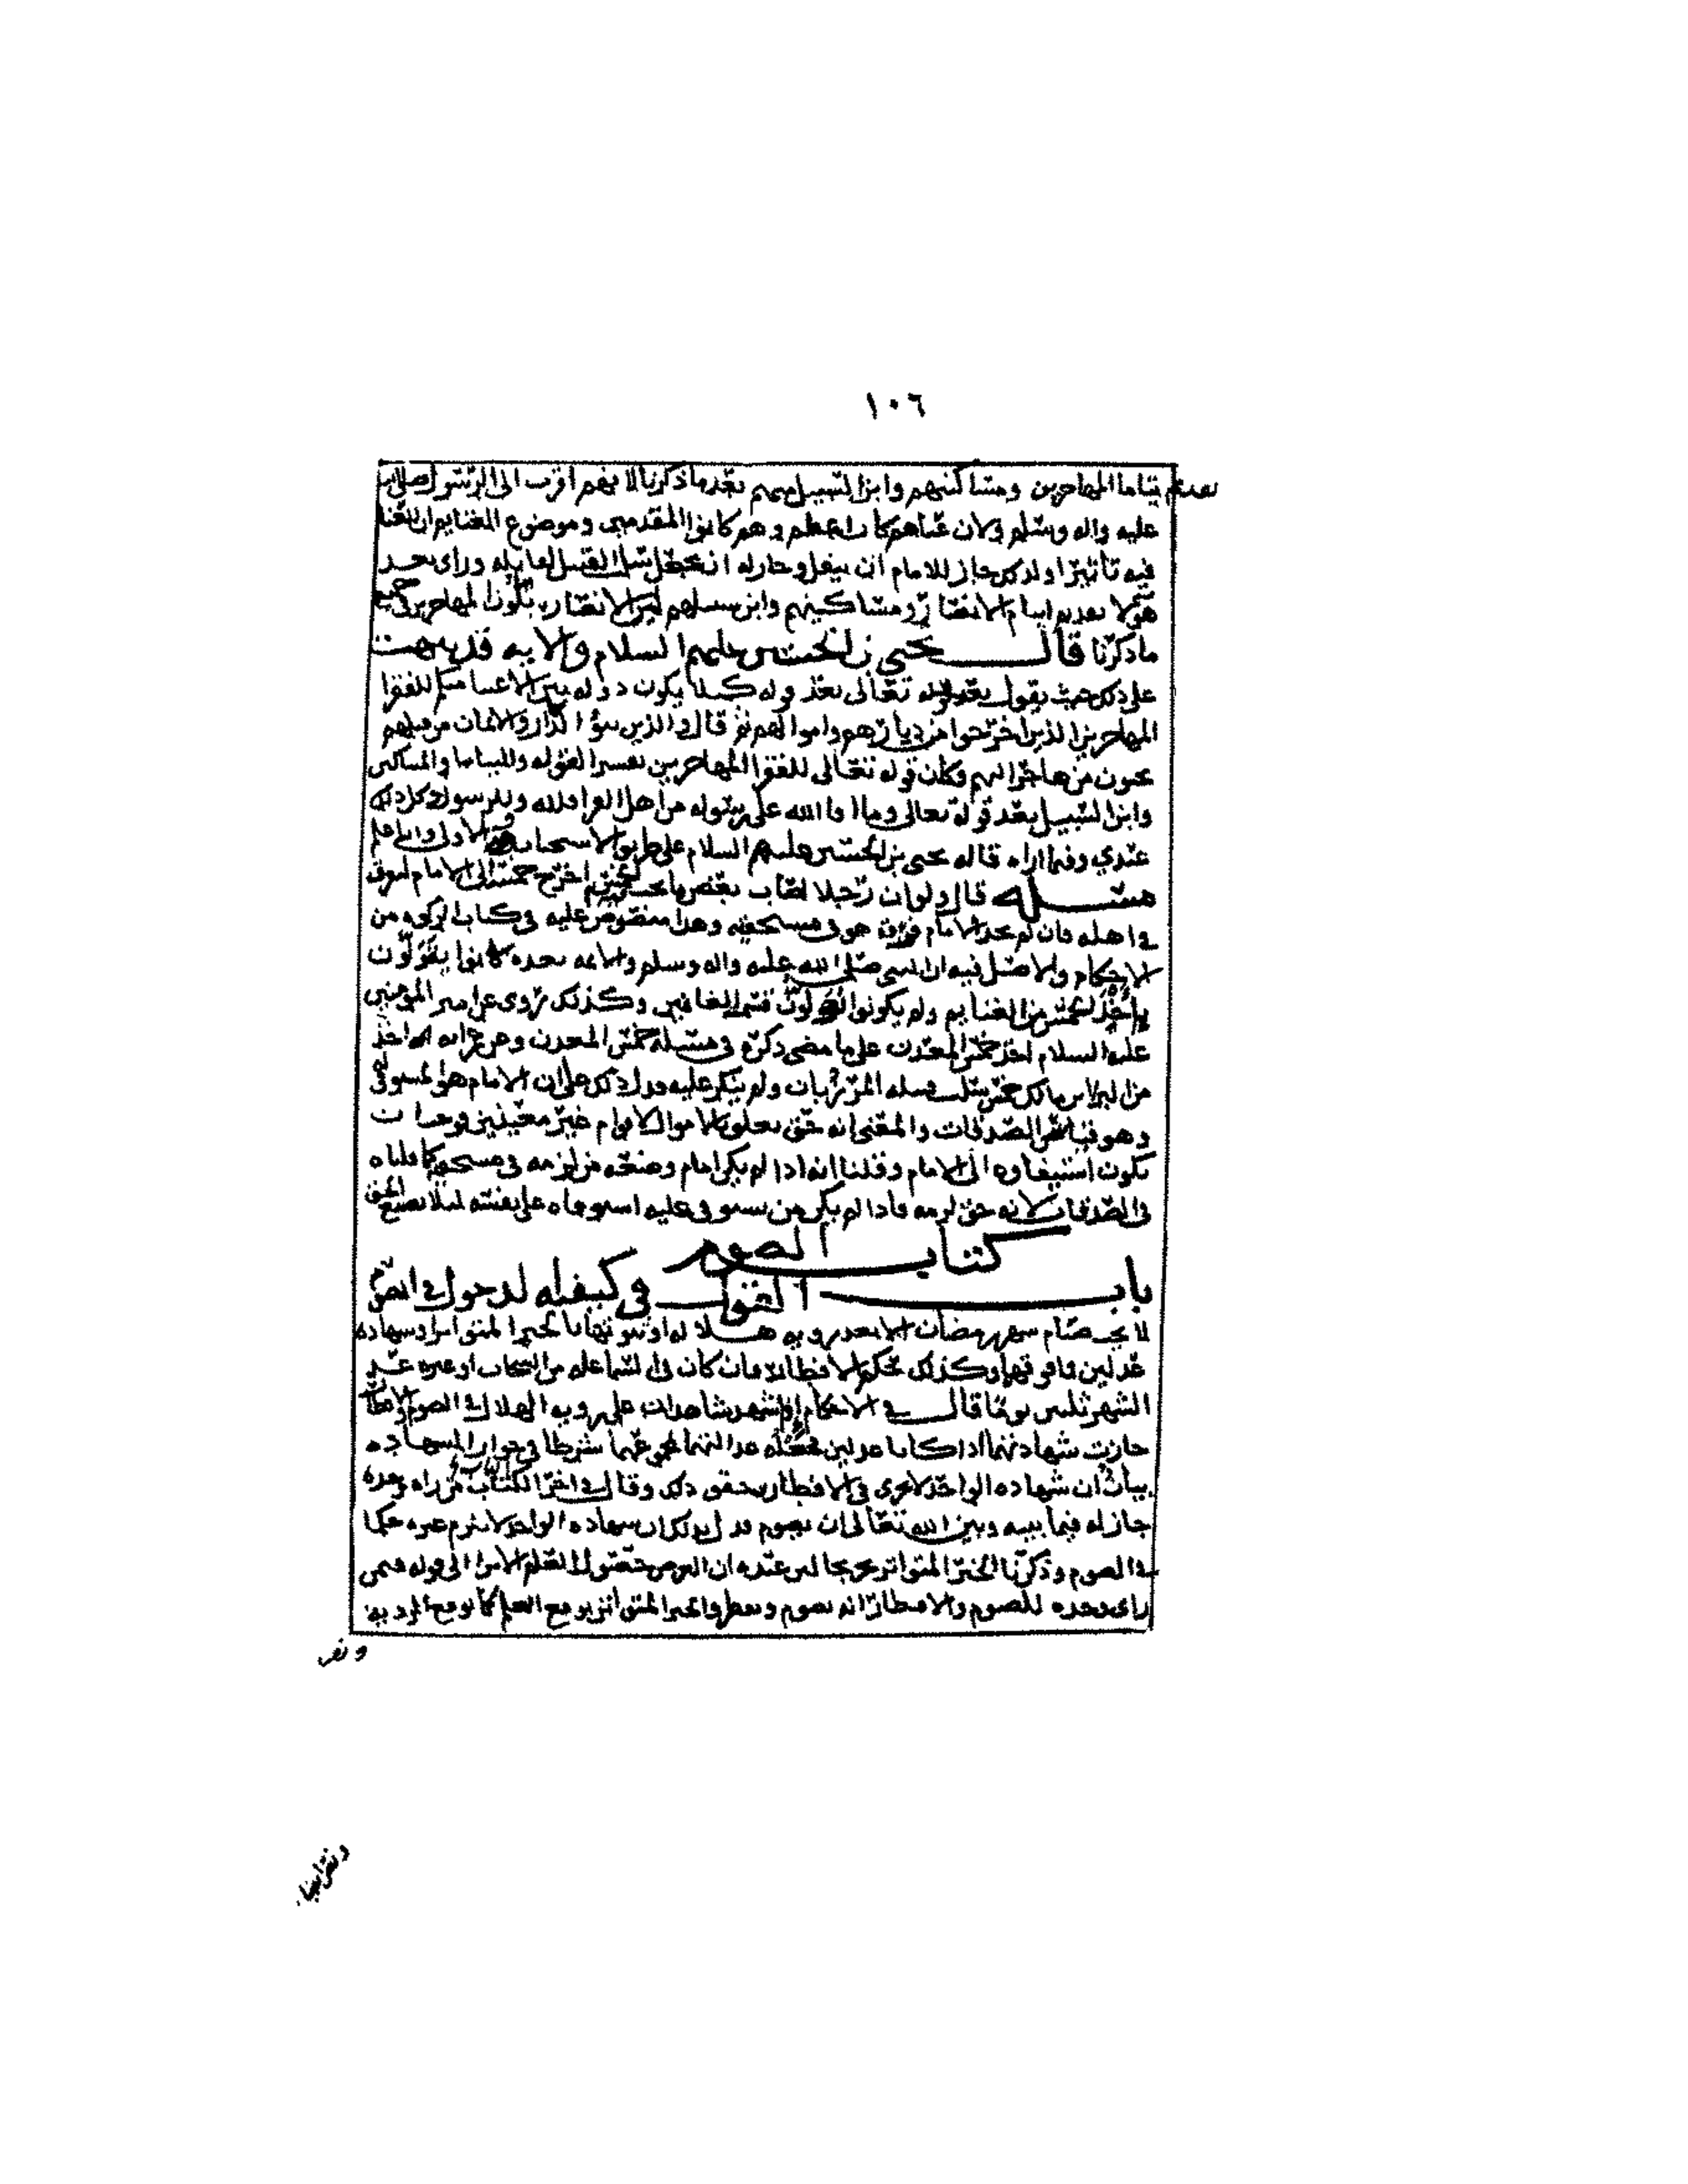 ١٠٦
يتاما المهاجرين ومساكينهم وابن السبيل منهم بعد ما ذكرنا لانهم اقرب الى الرسول صلى الله
عليه واله وسلم ولان غناهم كان اعظم وهم كانوا المقدمين وموضوع الغنايم ان للغنا
فيه تاثيرا ولذلك جاز للامام ان ينفل وجاز له ان يجعل سلب القتيل لقاتله وراى بعد
هولا تقديم ايتام الانصار ومساكينهم وابن سبيلهم لان الانصار يتلون المهاجرين في جميع
ما ذكرنا قال يحيى بن الحسين عليهم السلام والايه قد نبهت
على ذلك حيث يقول تعالى بعد قوله كيلا يكون دوله بين الاغنيا منكم للفقرا
المهاجرين الذين اخرجوا من ديارهم واموالهم ثم قال والذين تبوؤا الدار والايمان من قبلهم
يحبون من هاجر اليهم وكان قوله تعالى للفقرا المهاجرين تفسيرا لقوله ولليتاما والمساكين
وابن السبيل بعد قوله تعالى وما افا الله على رسوله من اهل القرا فلله وللرسول وكل ذلك
عندي وفيما اراه قاله يحيى بن الحسين عليهم السلام على طريق الاستحباب
مسئله قال ولو ان رجلا اصاب بعض ما يجب فيه الخمس اخرج خمسه الى الامام
في اهله فان لم يجد الامام فرقه هو في مستحقيه وهذا منصوص عليه في كتاب الزكوه من
الاحكام والاصل فيه ان النبي صلى الله عليه واله وسلم والايمه بعده كانوا يتولون
اخذ الخمس من الغنايم ولم يكونوا يولون قسم الغانمين وكذلك روى عن امير المومنين
عليه السلام اخذ خمس المعدن على ما مضى ذكره في مسئله خمس المعدن وعن عمر انه اخذ
من البراء بن مالك خمس سلب قتله المرزبان ولم ينكر عليه فدل ذلك على ان الامام هو المستوفي
وهو قياس الصدقات والمعنى انه حق تعلق بالاموال لاقوام غير معينين فوجب ان
يكون استيفاوه الى الامام وقلنا انه اذا لم يكن امام وضعه من لزمه في مستحقه كما قلناه
في الصدقات لانه حق لزمه فاذا لم يكن من يستوفي عليه استوفاه على نفسه لئلا يضيع الحق
كتاب الصوم
باب القول في كيفيه الدخول في الصوم
لا يجب صيام شهر رمضان الا بعد رويه هلاله او ثبوتها بالخبر المتواتر او شهاده
عدلين فما فوقهما وكذلك حكم الافطار فان كان في السما عله من السحاب او غيره عد
الشهر ثلثين يوما قال في الاحكام اذا شهد شاهدان على رويه الهلال في الصوم والافطار
جازت شهادتهما اذا كانا عدلين فجعل عدالتهما مجموعهما شرطا في جواز الشهاده
بيان ان شهاده الواحد لا تجزي في الافطار يحقق ذلك وقال في اخر الكتاب من راه وحده
جاز له فيما بينه وبين الله تعالى ان يصوم فدل بذلك ان شهاده الواحد لا تلزم غيره حكما
في الصوم وذكرنا الخبر المتواتر تخريجا لان عنده ان الغرض حصول العلم الا ترا الى قوله فيمن
راى وحده للصوم والافطار انه يصوم ويفطر والخبر المتواتر يوقع العلم كما توقع الرويه
ونص